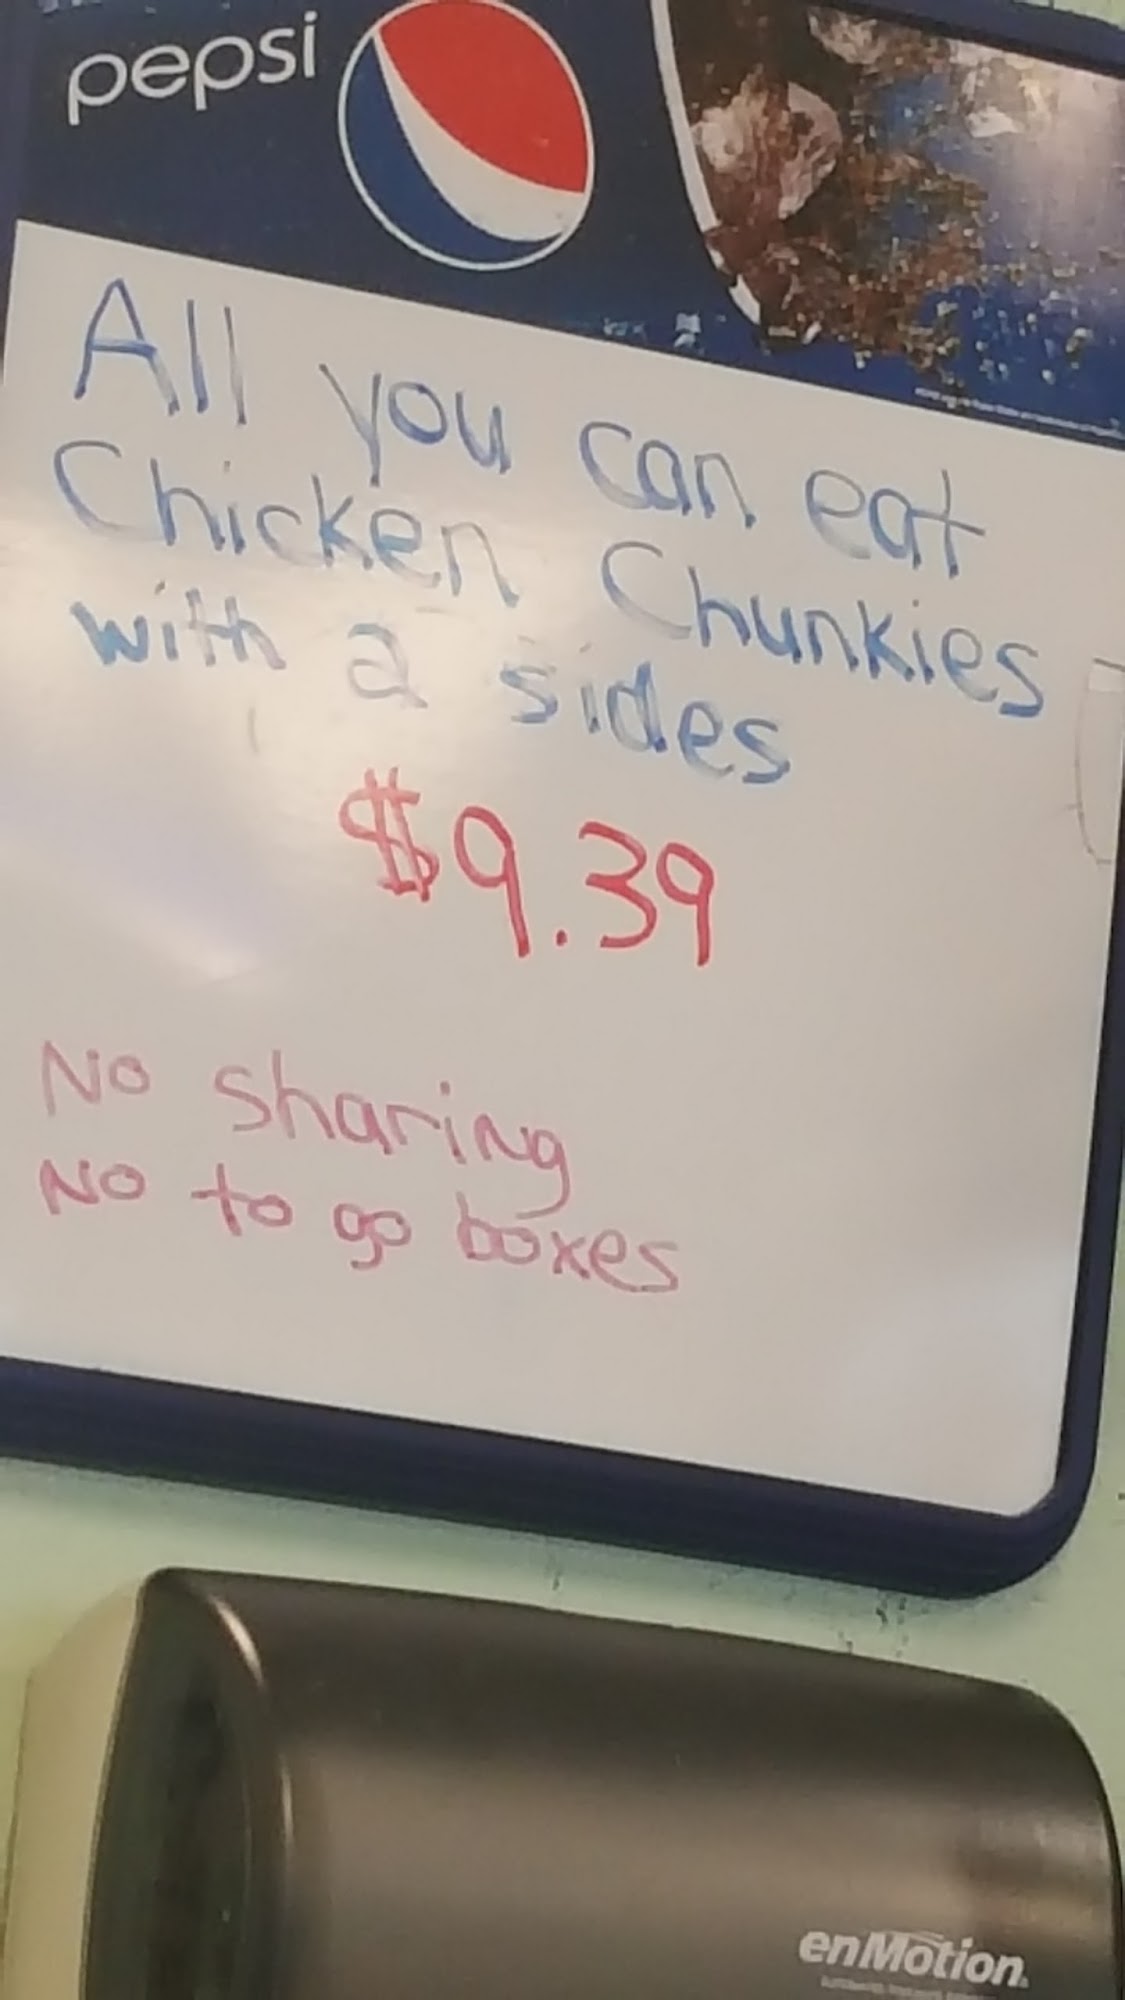 pepsi
All you can eat
Chicken Chunkies
with 2 sides
$9.39
No sharing
No to go boxes
enMotion